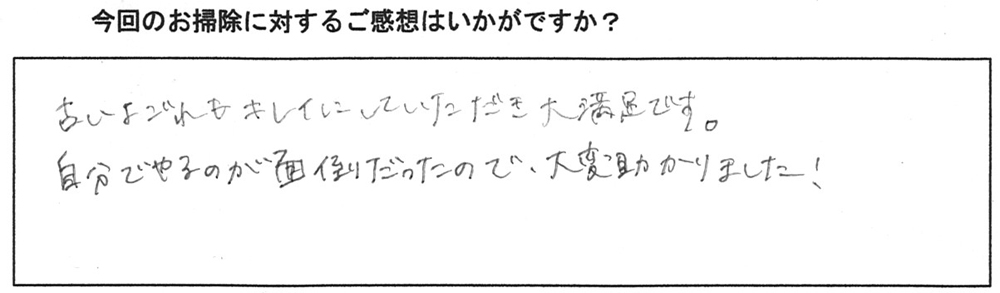 今回のお掃除に対するご感想はいかがですか？
古いよごれもキレイにしていただき大満足です。
自分でやるのが面倒だったので、大変助かりました！